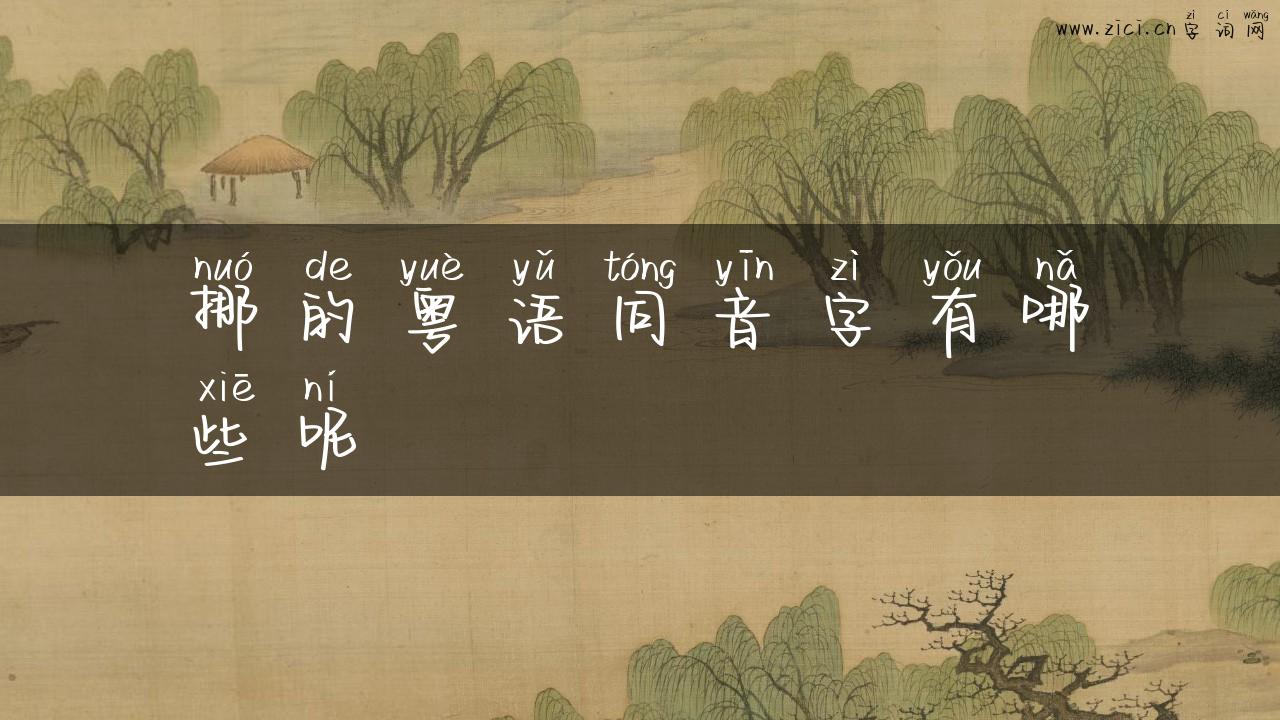 zì cí wǎng
www.zici.cn 字词网
nuó de yuè yǔ tóng yīn zì yǒu nǎ
挪的粤语同音字有哪
xiē ní
些呢